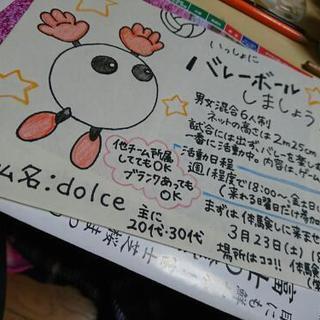 いっしょに
バレーボール
しましょう
男女混合6人制
ネットの高さは2m25cm
試合には出ずバレーを楽し
一番に活動中。内容は、ゲーム
活動日程
週1程度で18:00〜、金土日
(来れる曜日だけ参加
まずは体験しに来ませ
3月23日(土)
場所はココ!! 体験
他チーム所属
しててもOK
ブランクあっても
OK
ム名:dolce
主に
20代・30代